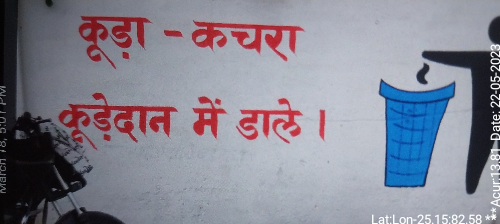 कूड़ा - कचरा
कूड़ेदान में डाले ।
March 18, 5:01 PM
Lat:Lon-25.15:82.58 **Acur:13.81 Date:22-05-2023